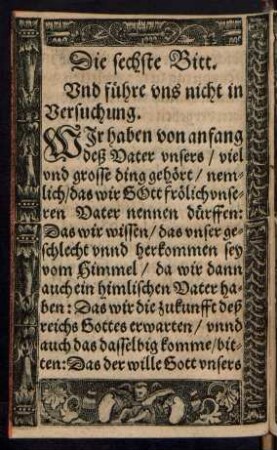 Die sechste Bitt.
Vnd führe vns nicht in
Versuchung.
WIr haben von anfang
deß Vater vnsers / viel
vnd grosse ding gehört / nem-
lich / das wir GOtt frölich vnse-
ren Vater nennen dürffen:
Das wir wissen / das vnser ge-
schlecht vnnd herkommen sey
vom Himmel / da wir dann
auch ein himlischen Vater ha-
ben: Das wir die zukunfft deß
reichs Gottes erwarten / vnnd
auch das dasselbig komme / bit-
ten: Das der wille Gott vnsers